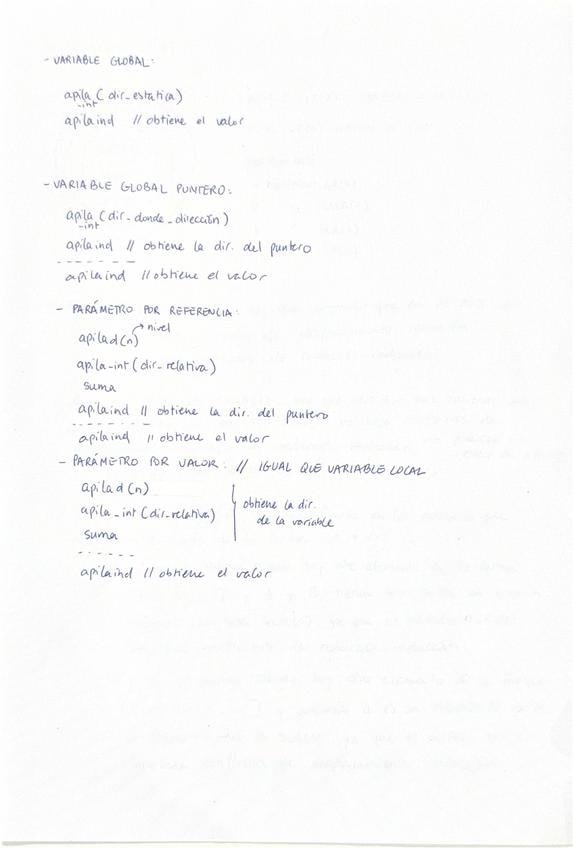 - VARIABLE GLOBAL:
apila-int (dir_estatica)
apilaind // obtiene el valor
- VARIABLE GLOBAL PUNTERO:
apila-int (dir_donde_dirección)
apilaind // obtiene la dir. del puntero
- - - - - - -
apilaind // obtiene el valor
- PARÁMETRO POR REFERENCIA:
apilad(n) → nivel
apila-int (dir_relativa)
suma
apilaind // obtiene la dir. del puntero
- - - - - - -
apilaind // obtiene el valor
- PARÁMETRO POR VALOR: // IGUAL QUE VARIABLE LOCAL
apilad(n)
apila_int (dir_relativa)
suma
obtiene la dir.
de la variable
- - - - - -
apilaind // obtiene el valor